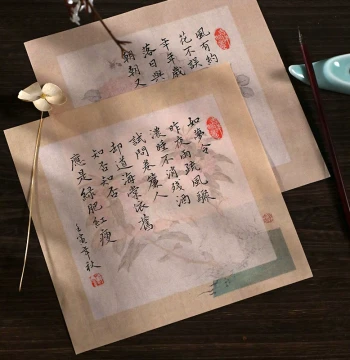 風有約
花不誤
年年歲
落日與
朝朝又
如夢令
昨夜雨疏風驟
濃睡不消殘酒
試問卷簾人
却道海棠依舊
知否知否
應是綠肥紅瘦
壬寅年秋